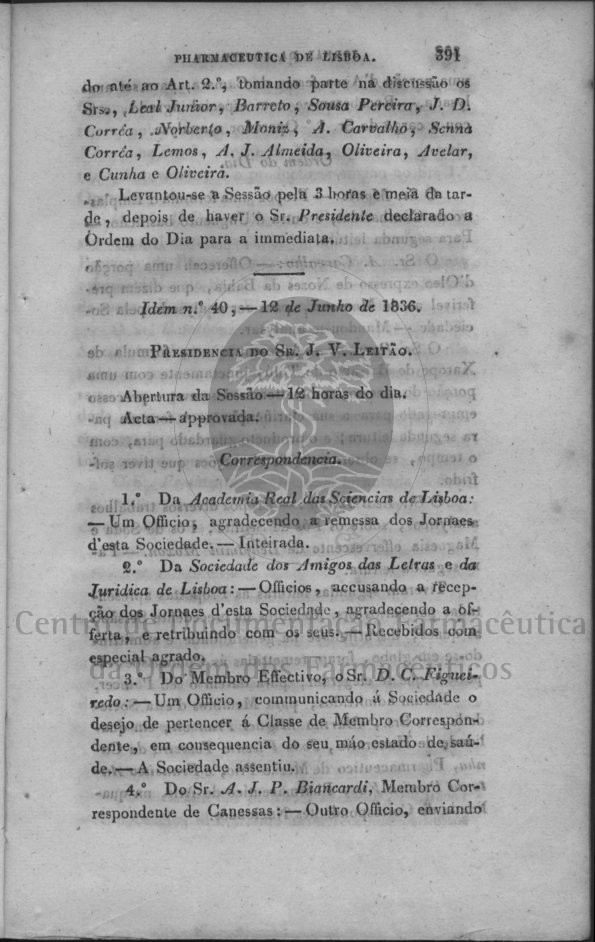 PHARMACEUTICA DE LISBOA. 391
do até ao Art. 2.º, tomando parte na discussão os
Srs., Leal Junior, Barreto, Sousa Pereira, J. D.
Corrêa, Norberto, Moniz, A. Carvalho, Senna
Corrêa, Lemos, A. J. Almeida, Oliveira, Avelar,
e Cunha e Oliveira.
Levantou-se a Sessão pela 3 horas e meia da tar-
de, depois de haver o Sr. Presidente declarado a
Ordem do Dia para a immediata.
Idem n.º 40, — 12 de Junho de 1836.
PRESIDENCIA DO SR. J. V. LEITÃO.
Abertura da Sessão — 12 horas do dia.
Acta — approvada.
Correspondencia.
1.º Da Academia Real das Sciencias de Lisboa:
— Um Officio, agradecendo a remessa dos Jornaes
d'esta Sociedade. — Inteirada.
2.º Da Sociedade dos Amigos das Letras e da
Juridica de Lisboa: — Officios, accusando a recep-
ção dos Jornaes d'esta Sociedade, agradecendo a of-
ferta, e retribuindo com os seus. — Recebidos com
especial agrado.
3.º Do Membro Effectivo, o Sr. D. C. Figuei-
redo: — Um Officio, communicando á Sociedade o
desejo de pertencer á Classe de Membro Correspon-
dente, em consequencia do seu máo estado de saú-
de. — A Sociedade assentiu.
4.º Do Sr. A. J. P. Biancardi, Membro Cor-
respondente de Canessas: — Outro Officio, enviando
Centro de Documentação Farmacêutica
da Ordem dos Farmacêuticos